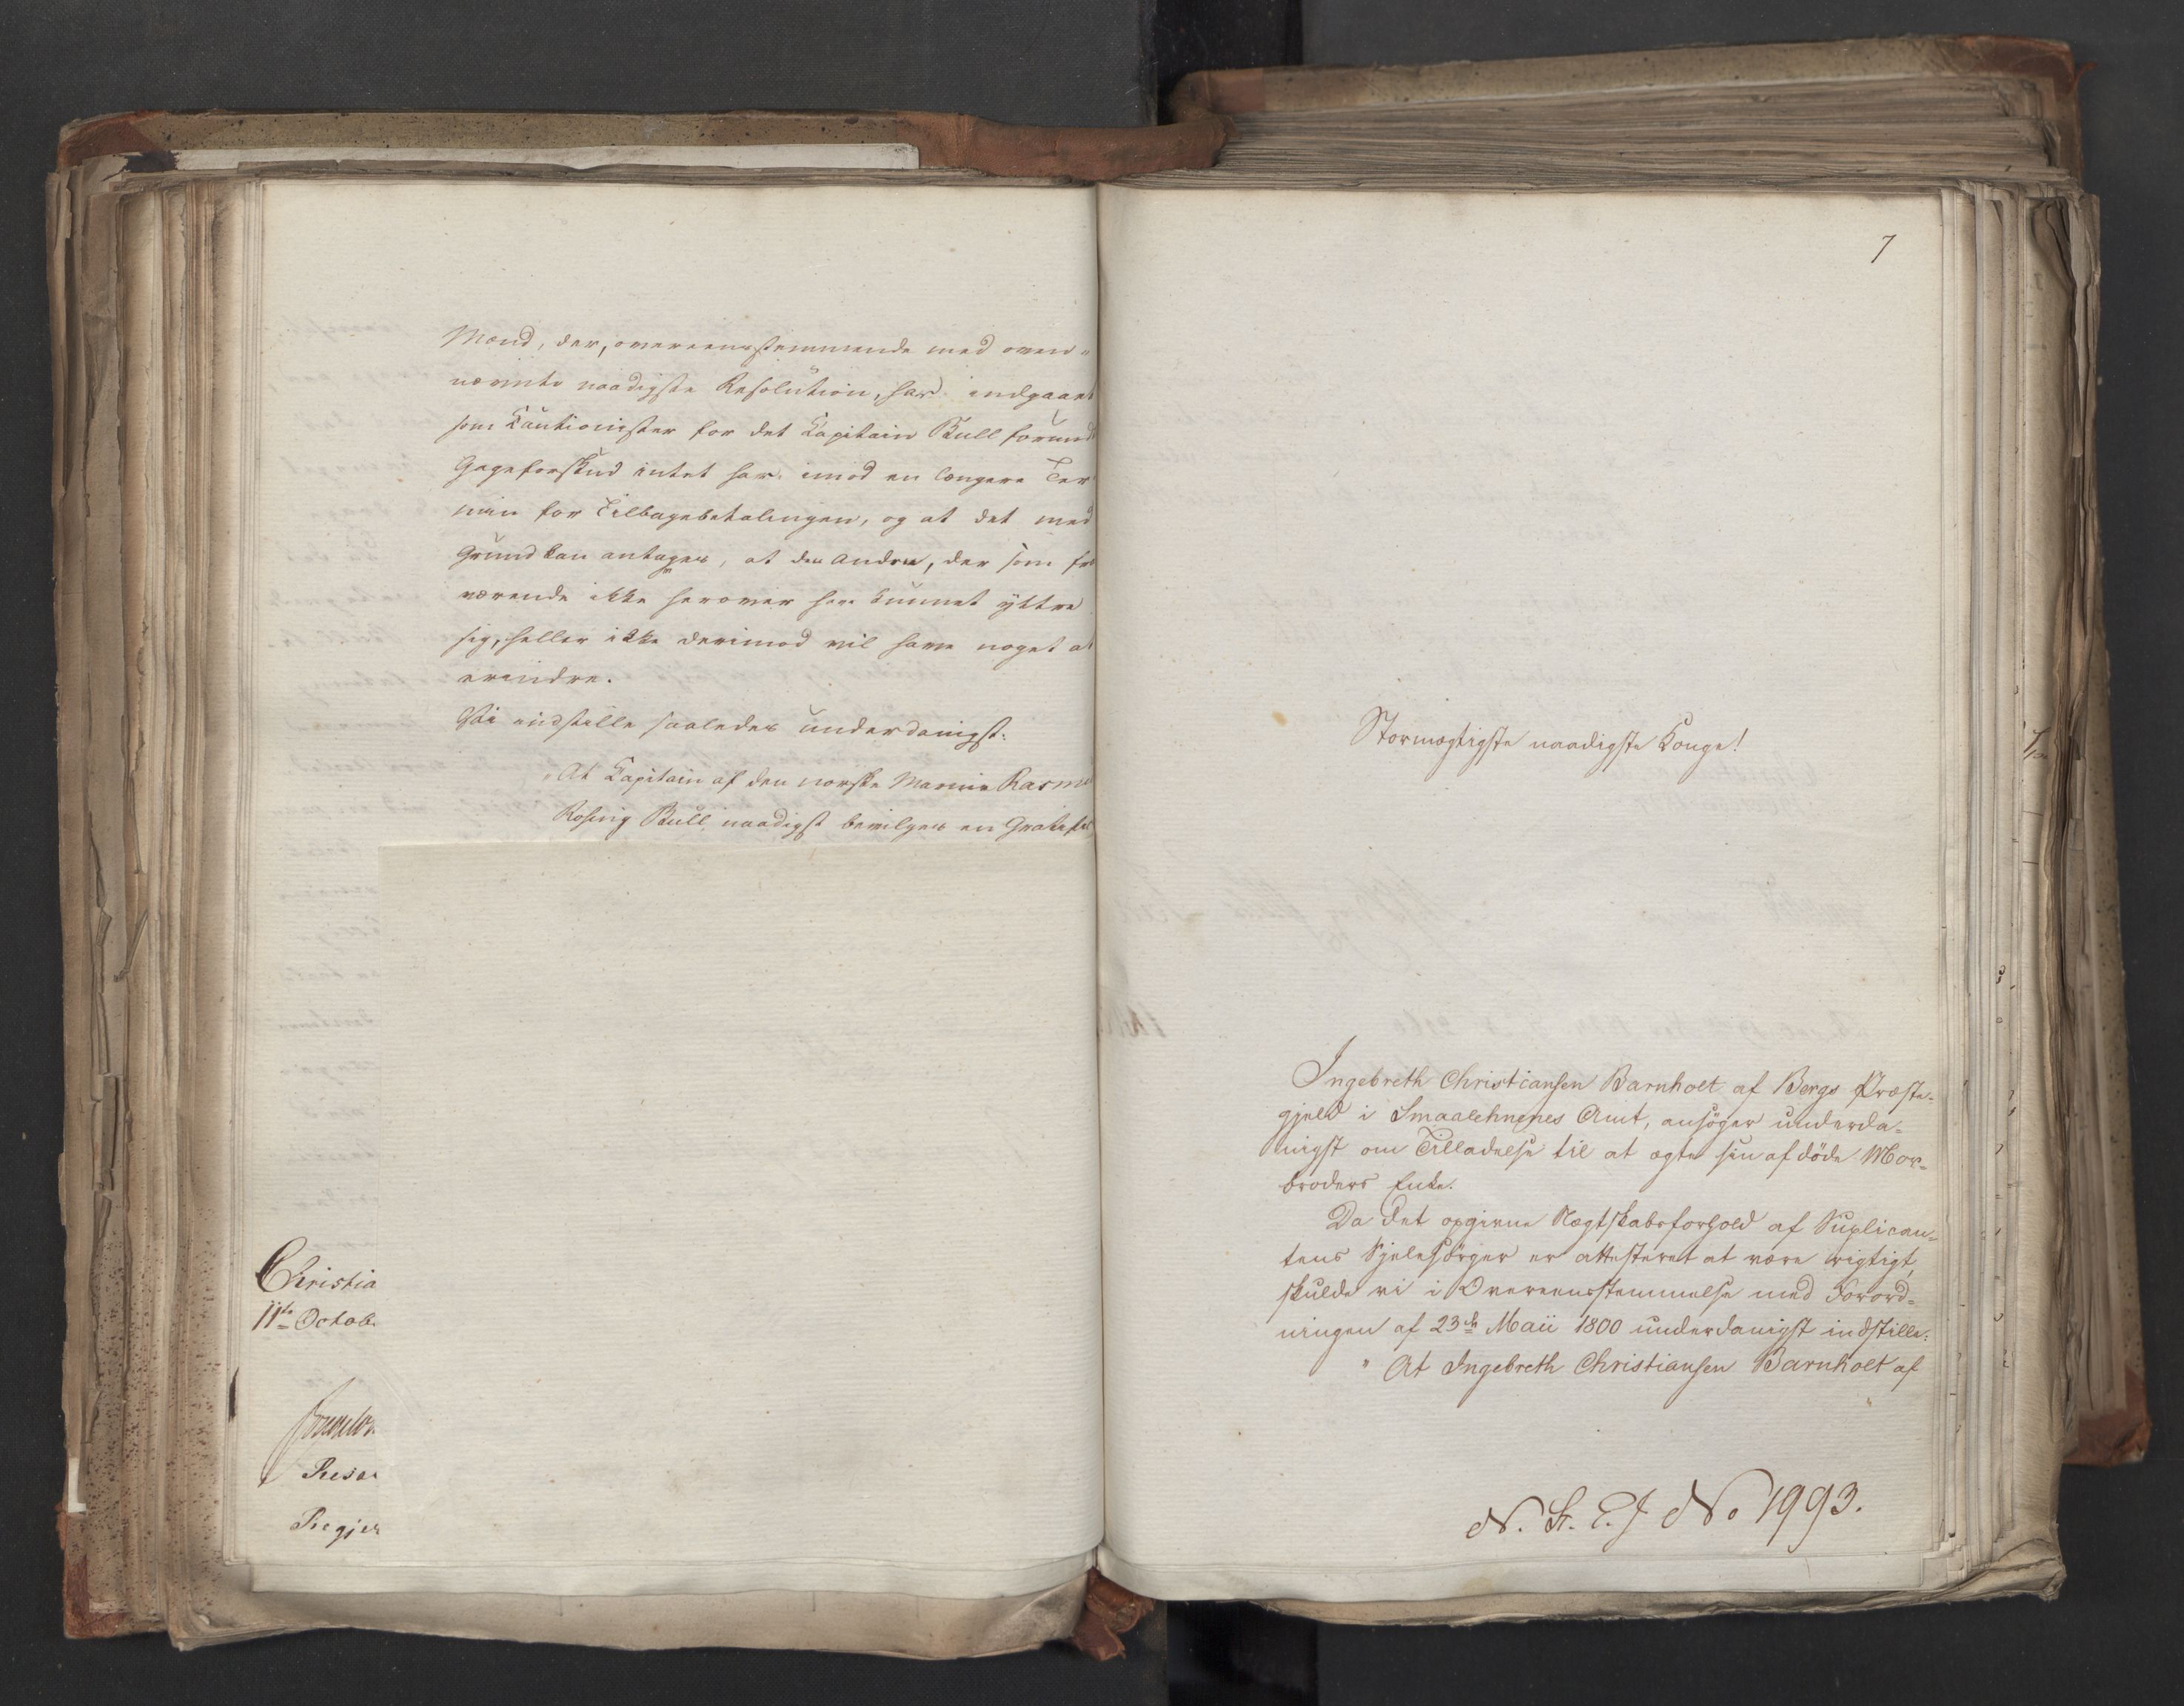 Mænd, der, overeensstemmende med oven-
nævnte naadigste Resolution, har indgaaet
som Kautionister for det Kapitain Bull forund
Gageforskud intet har imod en længere Ter
min for Tilbagebetalingen, og at det med
Grund kan antages, at den Anden, der som fra
værende ikke herover har kunnet yttre
sig, heller ikke derimod vil have noget at
erindre.
Vi indstille saaledes underdanigst:
"At Kapitain af den norske Marine Rasmu
Rosing Bull naadigst bevilges en Gratifi
Christia
11te Octob
Resol
Regjer
7
Stormægtigste naadigste Konge!
Ingebreth Christiansen Barnholt af Bergs Præste-
gjeld i Smaalehnenes Amt, ansöger underda-
nigst om Tilladelse til at ægte sin afdöde Mor-
broders Enke.
Da det opgivne Slægtskabsforhold af Suplican-
tens Sjelesörger er attesteret at være rigtigt,
skulde vi i Overeensstemmelse med Forord-
ningen af 23de Maii 1800 underdanigst indstille:
" At Ingebreth Christiansen Barnholt af
N. St. E. J No 1993.